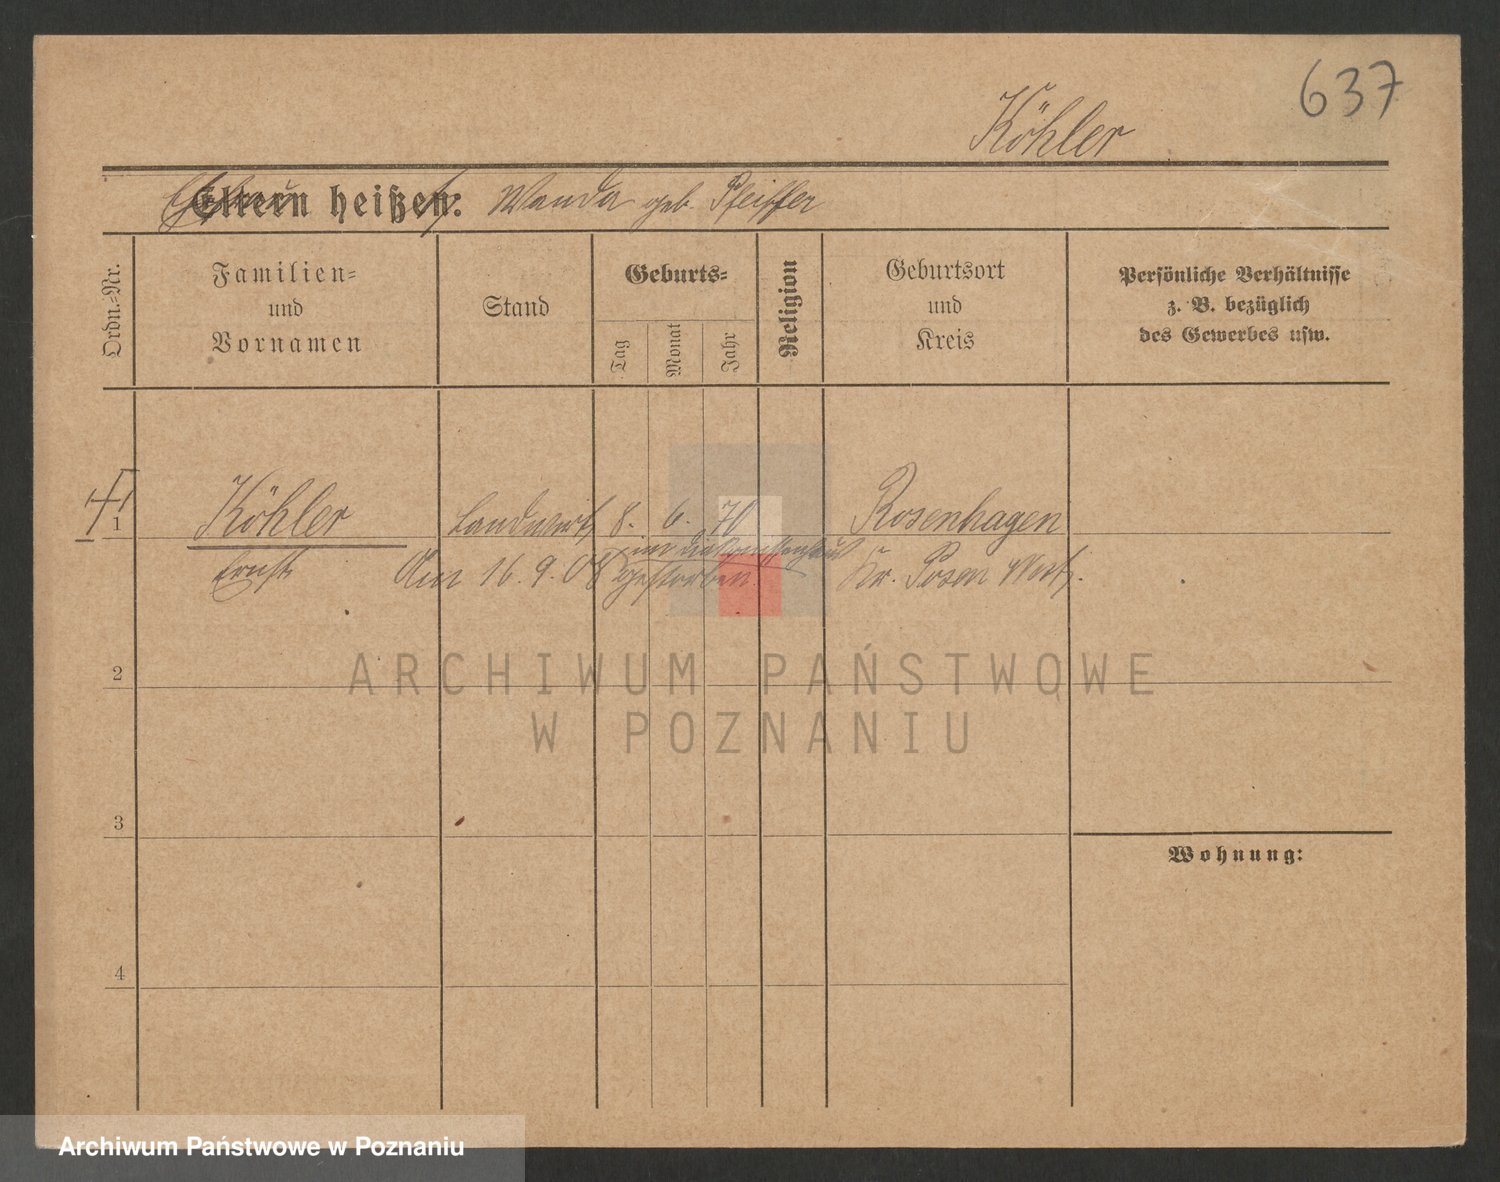 637
Köhler
Ehefrau Eltern heißen: Wanda geb. Pfeiffer
Ordn.=Nr.
Familien=
und
Vornamen
Stand
Geburts=
Tag
Monat
Jahr
Religion
Geburtsort
und
Kreis
Persönliche Verhältnisse
z. B. bezüglich
des Gewerbes usw.
1 Köhler Landwirt 8. 6. 70 Rosenhagen
im
Ernst Am 16. 9. 08 gestorben. Kr. Posen West.
2
ARCHIWUM PAŃSTWOWE
W POZNANIU
3
Wohnung:
4
Archiwum Państwowe w Poznaniu